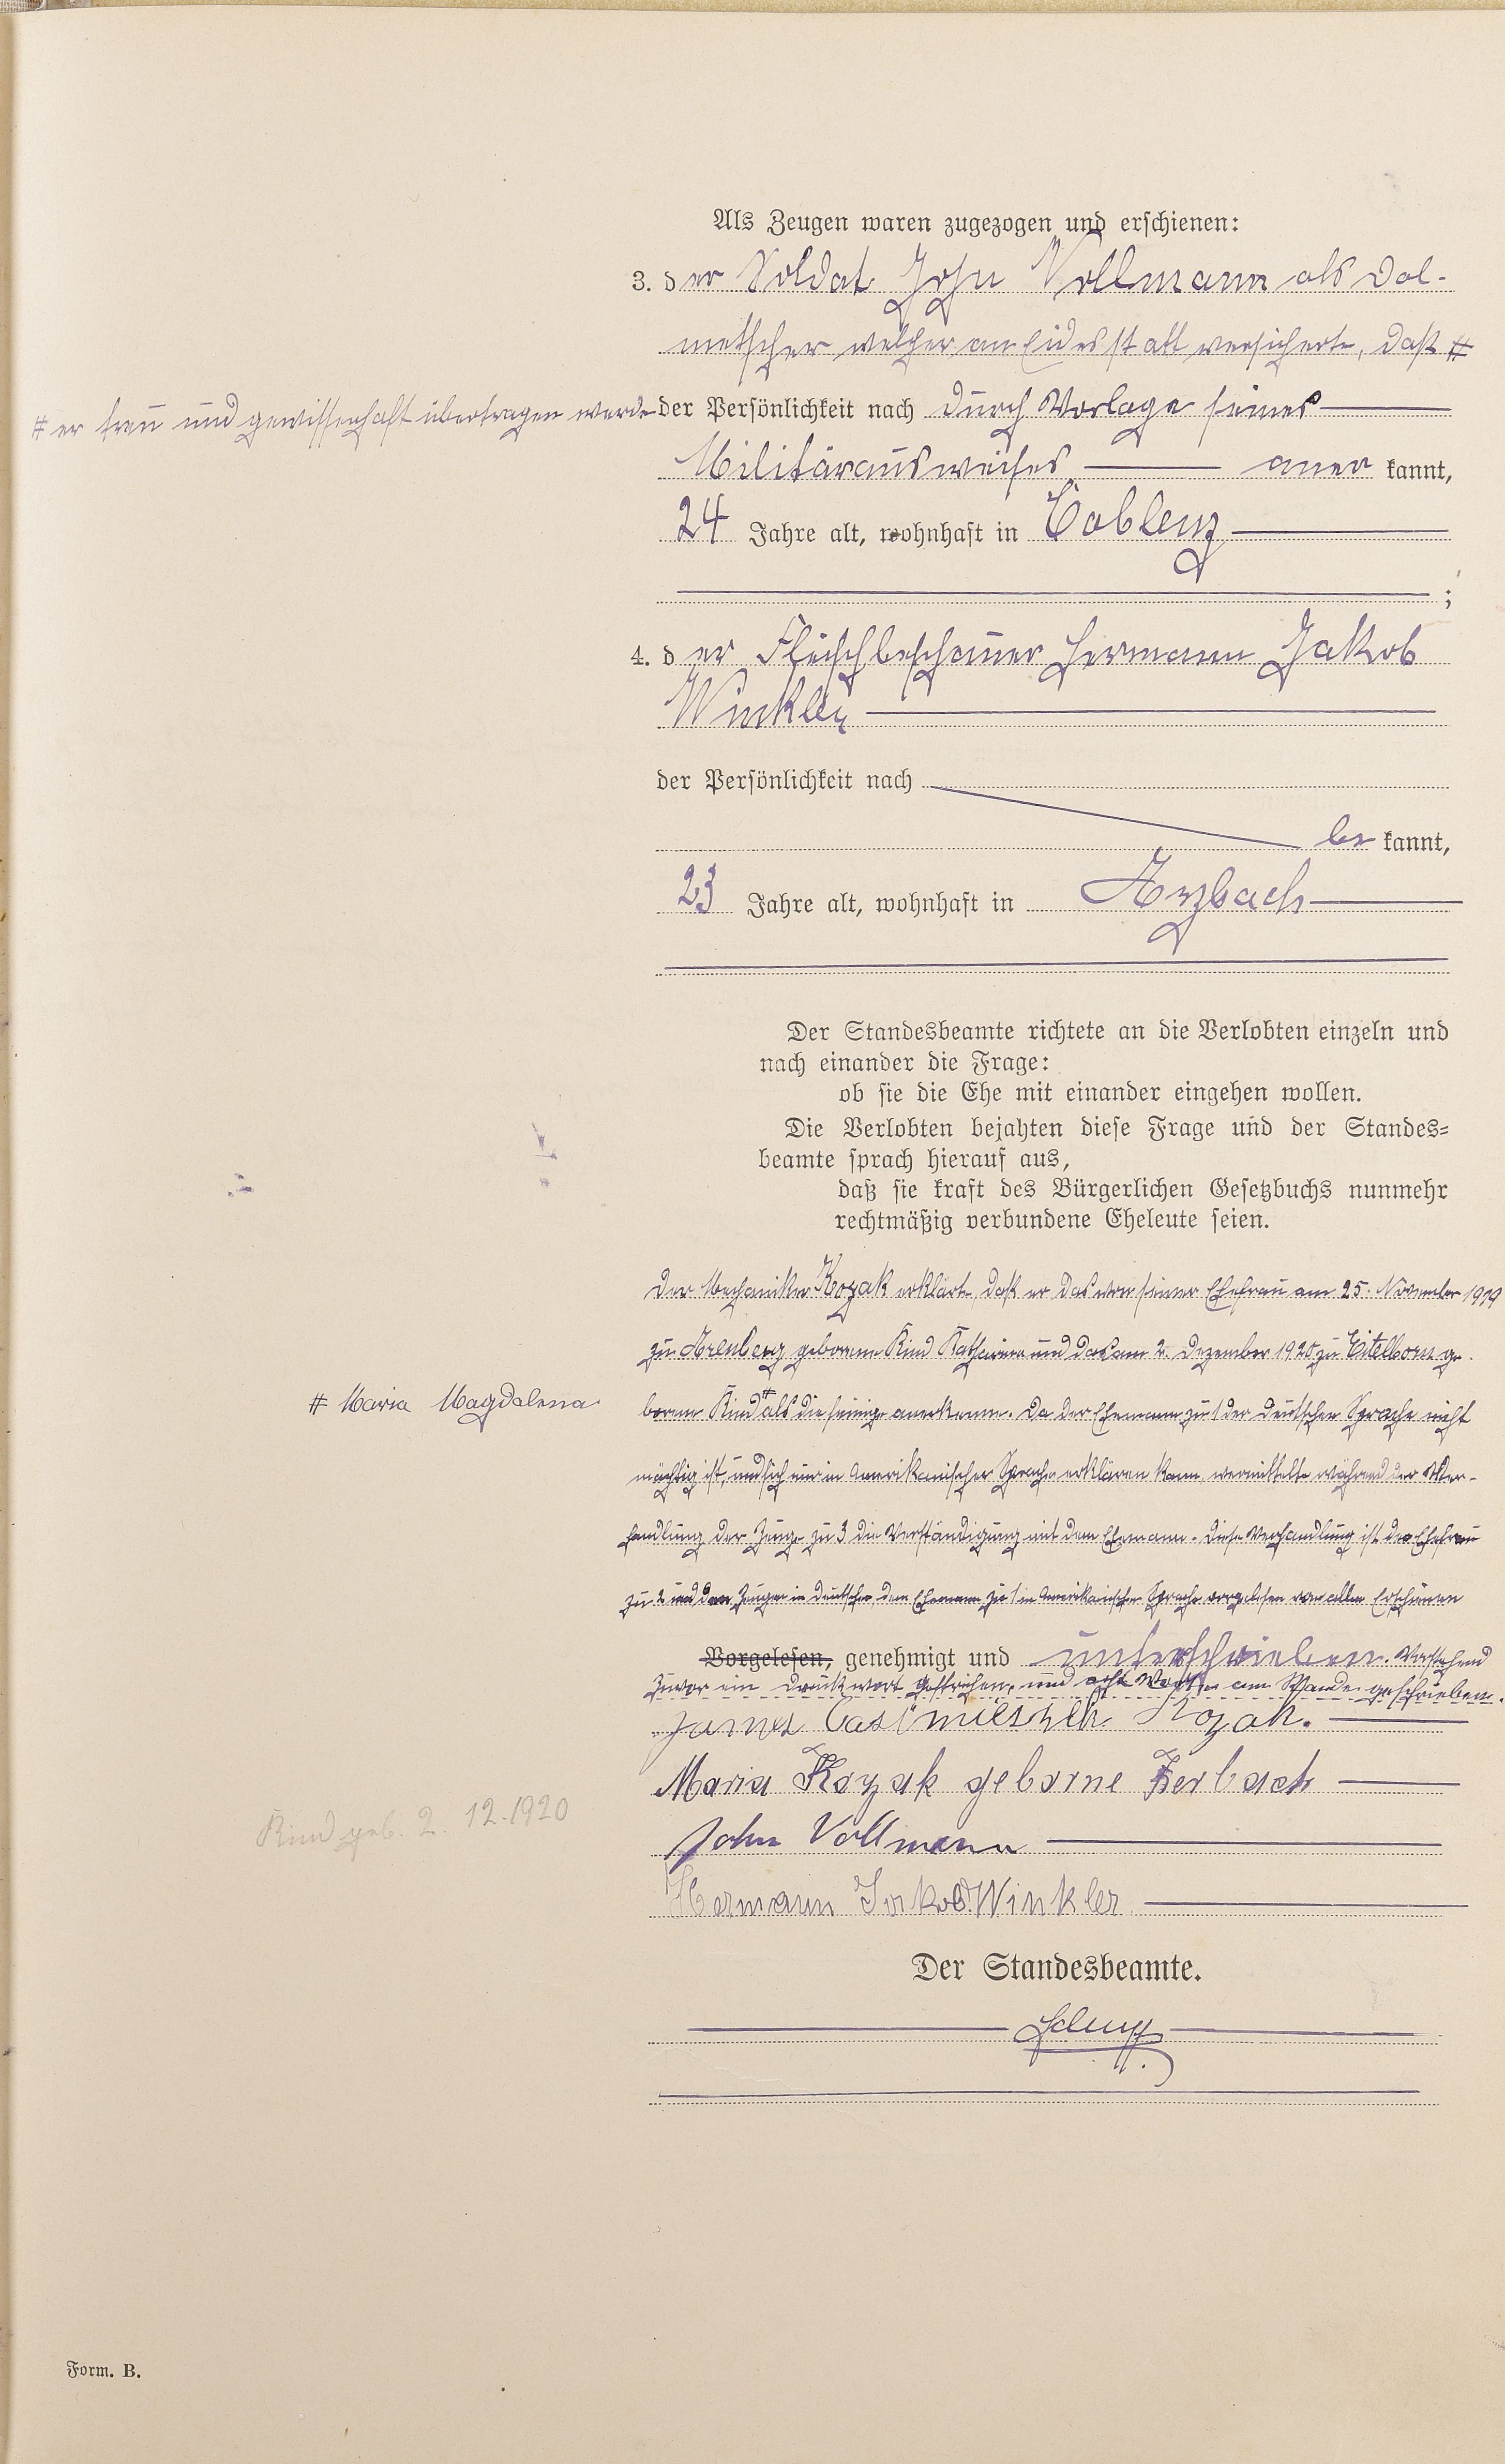 Als Zeugen waren zugezogen und erschienen:
3. der Soldat John Vollmann als Dol-
metscher welcher an Eides statt versicherte, daß #
# er treu und gewissenhaft übertragen werde
der Persönlichkeit nach durch Vorlage seines
Militärausweises anerkannt,
24 Jahre alt, wohnhaft in Coblenz
;
4. der Fleischbeschauer Hermann Jakob
Winkler
der Persönlichkeit nach
bekannt,
23 Jahre alt, wohnhaft in Arzbach
Der Standesbeamte richtete an die Verlobten einzeln und
nach einander die Frage:
ob sie die Ehe mit einander eingehen wollen.
Die Verlobten bejahten diese Frage und der Standes-
beamte sprach hierauf aus,
daß sie kraft des Bürgerlichen Gesetzbuchs nunmehr
rechtmäßig verbundene Eheleute seien.
Der Mechaniker Kozak erklärte, daß er das von seiner Ehefrau am 25. November 1919
zu Arenberg geborene Kind Katharina und das am 2. Dezember 1920 zu Eitelborn ge-
borene Kind # als die seinige anerkenne. Da der Ehemann zu 1 der deutschen Sprache nicht
# Maria Magdalena
mächtig ist, und sich nur in Amerikanischer Sprache erklären kann, vermittelte während der Ver-
handlung der Zeuge zu 3 die Verständigung mit dem Ehemann. Diese Verhandlung ist der Ehefrau
zu 2 und den Zeugen in deutscher, dem Ehemann zu 1 in Amerikanischer Sprache vorgelesen von allen Erschienen
Vorgelesen, genehmigt und unterschrieben. Vorstehend
zuvor ein Druckwort gestrichen, und acht Worte am Rande geschrieben.
James Kozak.
Maria Kozak geborne Zerbach
John Vollmann
Kind geb. 2. 12. 1920
Hermann Jakob Winkler
Der Standesbeamte.
Form. B.